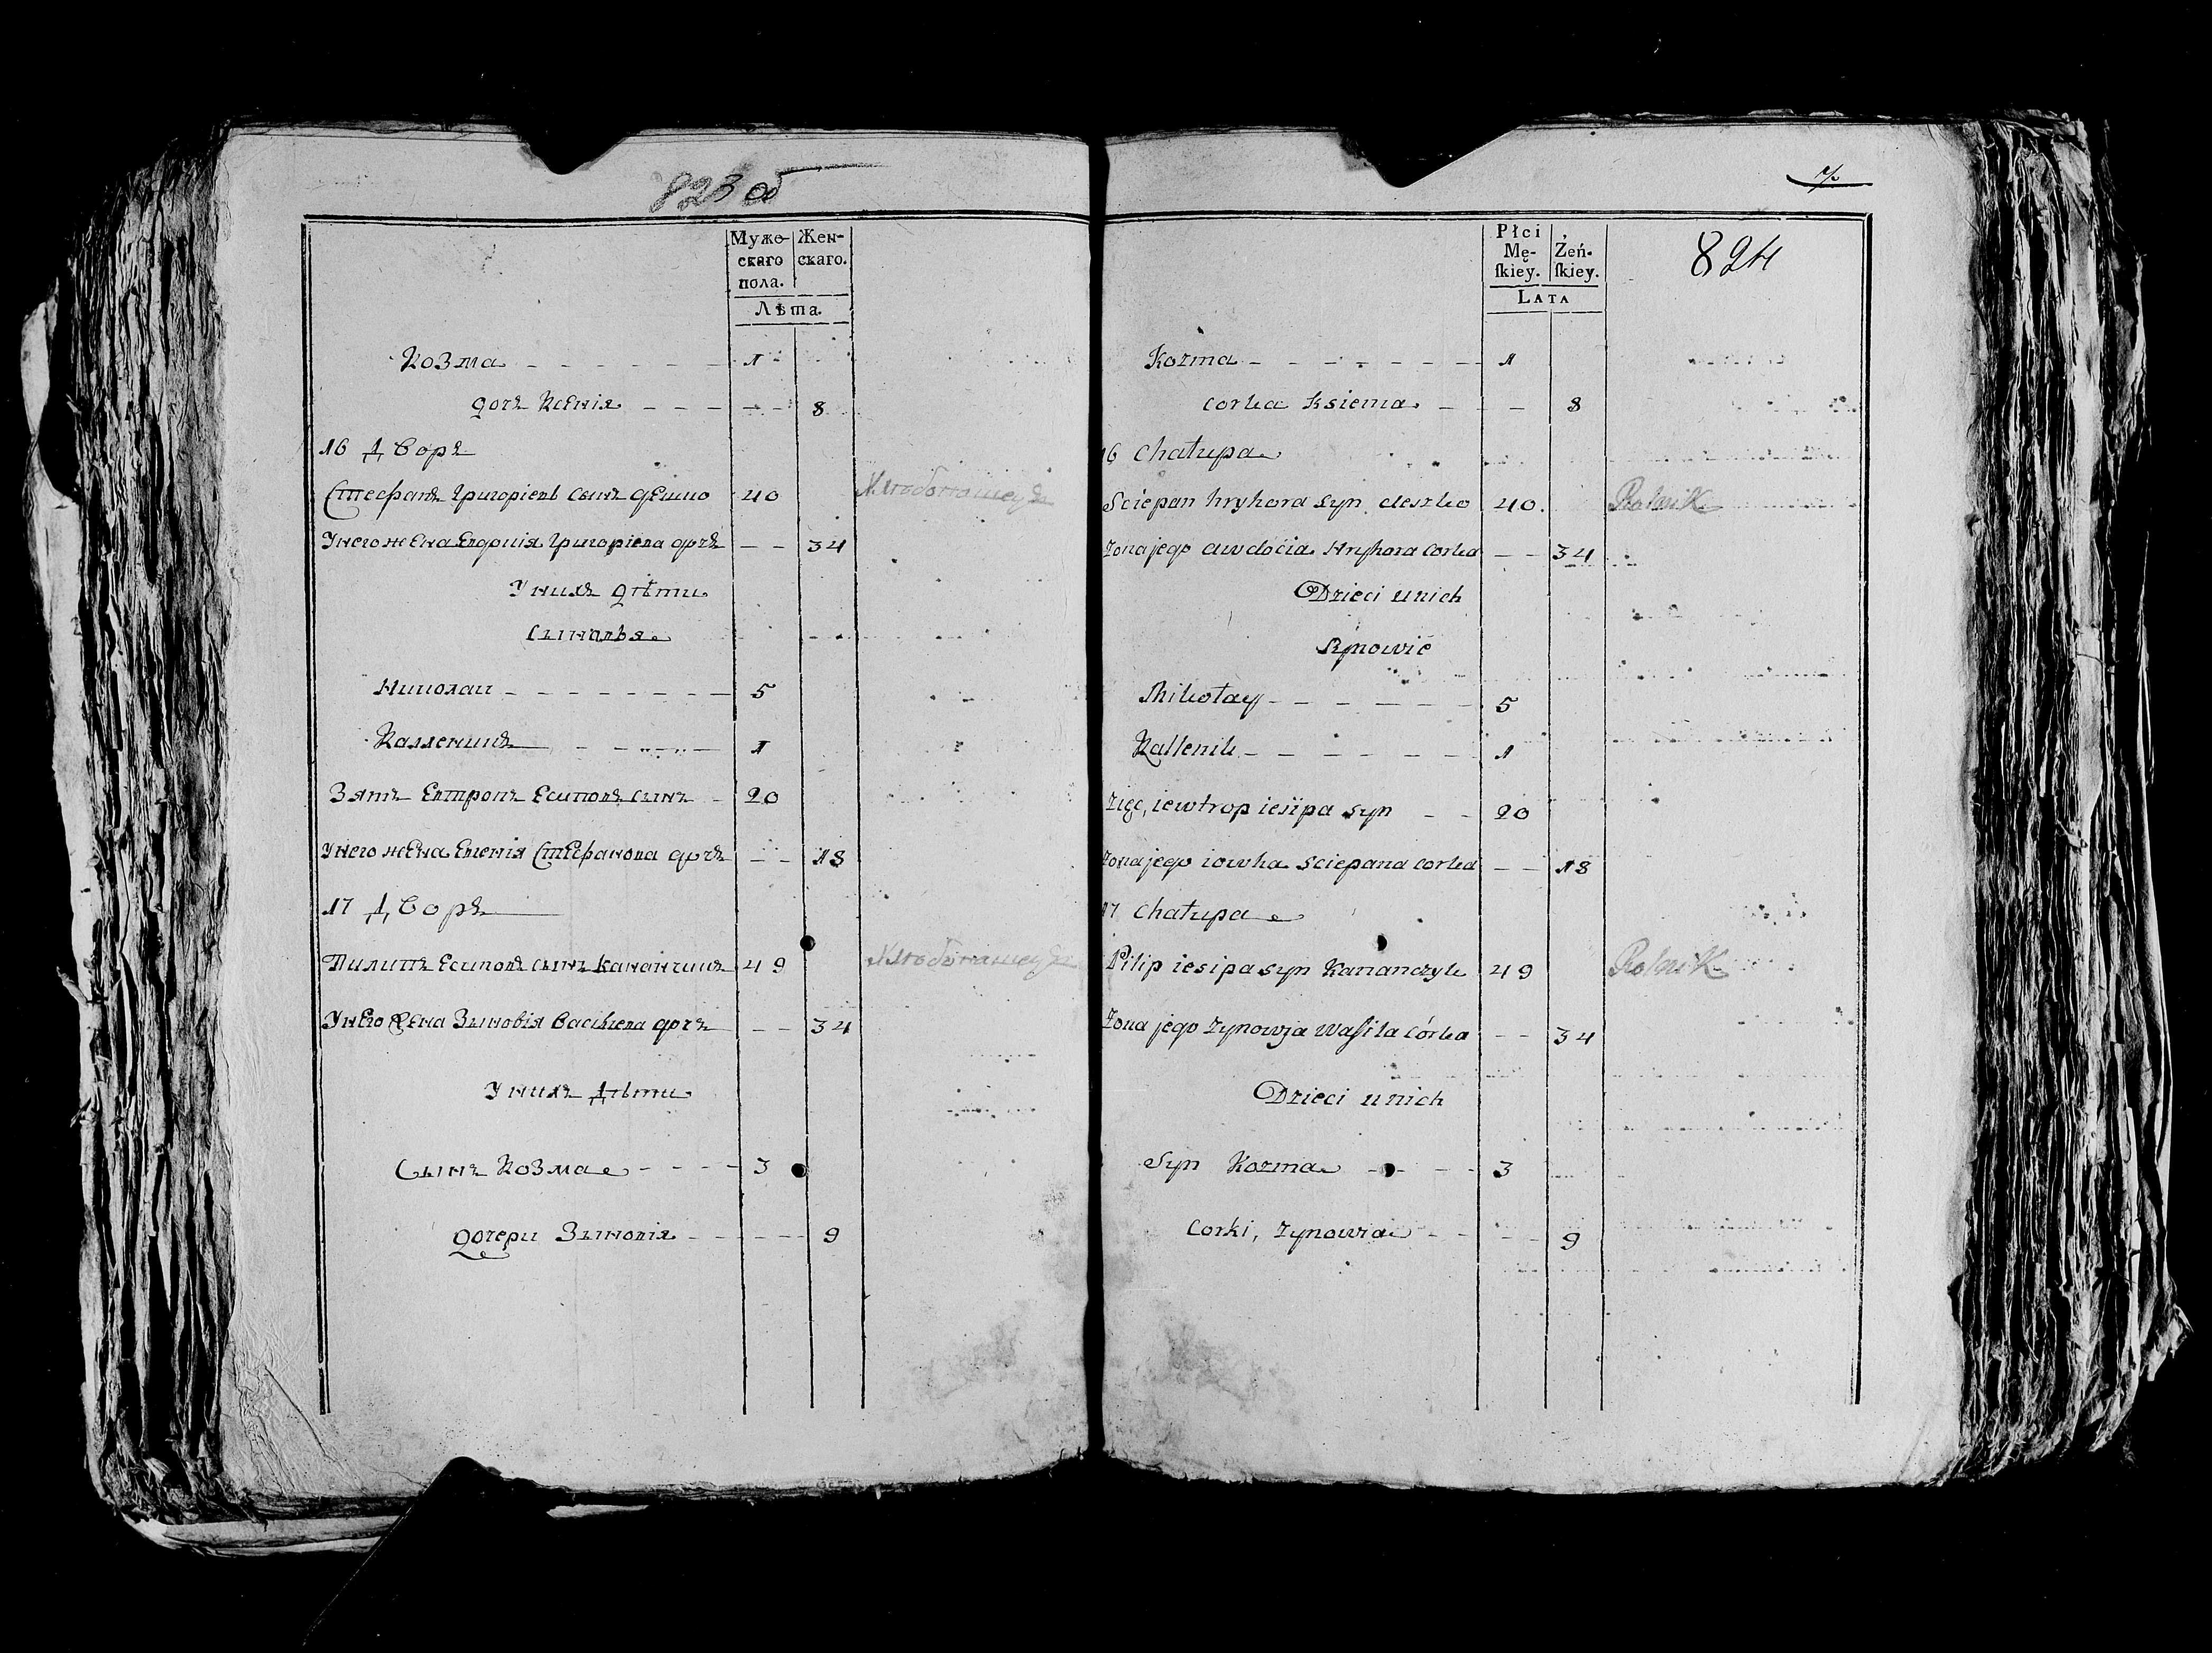 823 об
Муже-
скаго
пола.
Жен-
скаго.
Лѣта.
Козма - - - - - - 1
дочь Ксенія - - - - - 8
16 Дворъ
Стефанъ Григоріевъ сынъ Дешко 40 Хлѣбопашецъ
У него жена Евдокия Григоріева дочь - - 34
У нихъ дѣти
Сыновья
Николаи - - - - - - - - 5
Калленикъ - - - - 1
Зять Евтропъ Есиповъ сынъ - 20
У него жена Евгенія Стефанова дочь - - 18
17 Дворъ
Пилипъ Есиповъ сынъ Кананчикъ 49 Хлѣбопашецъ
У него жена Зыновія Васільева дочь - - 34
У нихъ Дѣти
Сынъ Козма - - - - 3
дочери Зыновія - - - - - 9
824
Płci
Mę-
ſkiey.
Żeń-
ſkiey.
LATA
Kozma - - - - - - - 1
corka Ksienia - - - 8
16 Chałupa
Sciepan hryhora syn deszko 40. Rolnik
Żona jego awdocia Hryhora Corka - - 34
Dzieci u nich
Synowie
Mikołay - - - - - - 5
Kallenik - - - - - - 1
Zięc, iewtrop iesipa syn - - 20
Żona jego iowha Sciepana corka - - 18
17 Chałupa
Pilip iesipa syn Kananczyk 49 Rolnik
Żona jego Zynowja Waſila Córka - - 34
Dzieci u nich
Syn Kozma - - - - 3
Corki, Zynowia - - - - 9